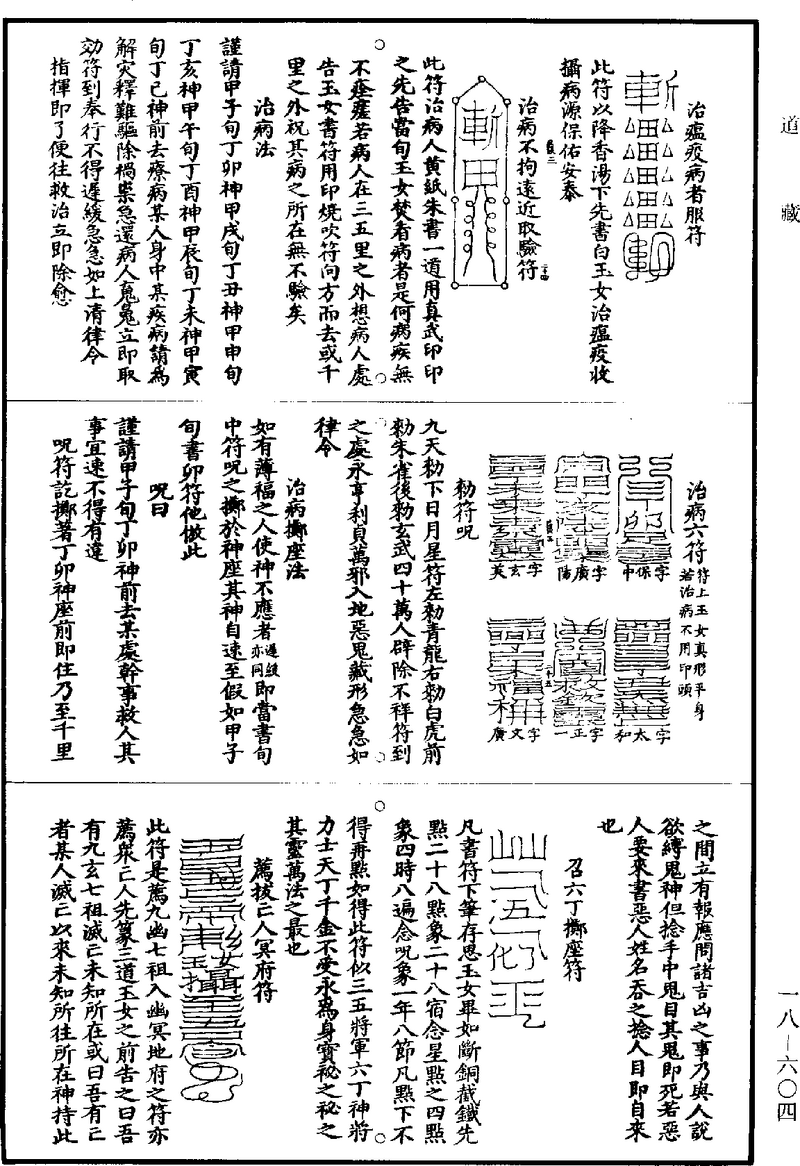 道藏
治瘟疫病者服符
此符以降香湯下先書白玉女治瘟疫收
攝病源保佑安泰
治病不拘遠近取驗符
此符治病人黃紙朱書一道用真武印印
之先告當旬玉女焚看病者是何病疾無
不痊瘥若病人在三五里之外想病人處
告玉女書符用印燒吹符向方而去或千
里之外祝其病之所在無不驗矣
治病法
謹請甲子旬丁卯神甲戌旬丁丑神甲申旬
丁亥神甲午旬丁酉神甲辰旬丁未神甲寅
旬丁巳神前去療病某人身中某疾病請為
解灾釋難驅除禍祟急還病人䰟魄立即取
効符到奉行不得遲緩急急如上清律令
指揮即了便往救治立即除愈
治病六符
符上玉女真形平身
若治病不用印頭
字保中
字廣陽
字玄英
字太和
字正一
字文廣
勑符呪
九天勑下日月星符左勑青龍右勑白虎前
勑朱雀後勑玄武四十萬人辟除不祥符到
之處永亨利貞萬邪入地惡鬼藏形急急如
律令
治病擲座法
如有薄福之人使神不應者遲緩亦同即當書旬
中符呪之擲於神座其神自速至假如甲子
旬書卯符他倣此
呪曰
謹請甲子旬丁卯神前去某處幹事救人其
事宜速不得有違
呪符訖擲著丁卯神座前即住乃至千里
之間立有報應問諸吉凶之事乃與人說
欲縛鬼神但捻手中鬼目其鬼即死若惡
人要來書惡人姓名吞之捻人目即自來
也
召六丁擲座符
凡書符下筆存思玉女畢如斷銅截鐵先
點二十八點象二十八宿念星點之四點
象四時八遍念呪象一年八節凡點下不
得再點如得此符似三五將軍六丁神將
力士天丁千金不受永為身寳祕之祕之
其靈萬法之最也
薦拔亡人冥府符
此符是薦九幽七祖入幽冥地府之符亦
薦衆亡人先篆三道玉女之前告之曰吾
有九玄七祖滅亡未知所在或曰吾有亡
者某人滅亡以來未知所往所在神持此
一八—六〇四